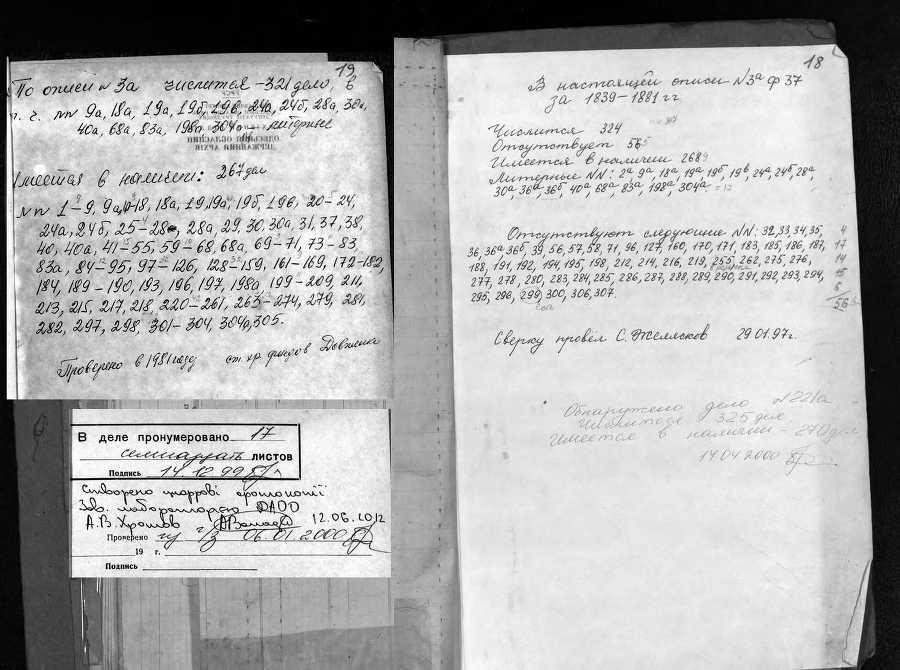 19
По описи № 3а числится – 321 дело, в
т. ч. №№ 9а, 18а, 19а, 19б, 19в, 24а, 24б, 28а, 30а,
40а, 68а, 83а, 198а 304а – литерные
ОДЕСЬКИЙ ОБЛАСНИЙ
ДЕРЖАВНИЙ АРХІВ
Имеется в наличии: 264 дел
№№ 1–9, 9а, 10–18, 18а, 19, 19а, 19б, 19в, 20–24,
24а, 24б, 25–28, 28а, 29, 30, 30а, 31, 37, 38,
40, 40а, 41–55, 59–68, 68а, 69–71, 73–83
83а, 84–95, 97–126, 128–159, 161–169, 172–182,
184, 189–190, 193, 196, 197, 198а, 199–209, 211,
213, 215, 217, 218, 220–261, 263–274, 279, 281,
282, 297, 298, 301–304, 304а, 305.
Проверено в 1981 году ст. хр. фондов Довженко
В деле пронумеровано 17
семнадцать листов
Подпись 14.12.99
Створено цифрові фотокопії
Зав. лабораторією ДАОО
А.В. Хромов 12.06.2012
Проверено 06.01.2000
19 г.
Подпись
18
В настоящей описи № 3а ф 37
за 1839–1881 гг
Числится 324
Отсутствует 56
Имеется в наличии 268
Литерные NN: 2а, 9а, 18а, 19а, 19б, 19в, 24а, 24б, 28а,
30а, 36а, 36б, 40а, 68а, 83а, 198а, 304а = 17
Отсутствуют следующие NN: 32, 33, 34, 35, 4
36, 36а, 36б, 39, 56, 57, 58, 71, 96, 127, 160, 170, 171, 183, 185, 186, 187, 17
188, 191, 192, 194, 195, 198, 212, 214, 216, 219, 255, 262, 275, 276, 14
277, 278, 280, 283, 284, 285, 286, 287, 288, 289, 290, 291, 292, 293, 294, 15
295, 296, 299, 300, 306, 307. 6
56
Сверку провёл С. Желясков 29.01.97г.
Обнаружено дело № 221а
Числится 325 дел
Имеется в наличии – 270 дел
14.04.2000